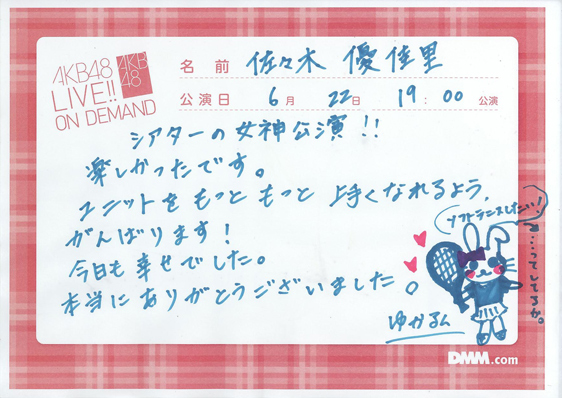 AKB48
LIVE!!
ON DEMAND
AKB
48
名前 佐々木 優佳里
公演日 6月 22日 19:00 公演
シアターの女神公演!!
楽しかったです。
ユニットをもっともっと上手くなれるよう、
がんばります!
今日も幸せでした。
本当にありがとうございました。
ソフトテニスしたーい!
ゆかるん
DMM.com